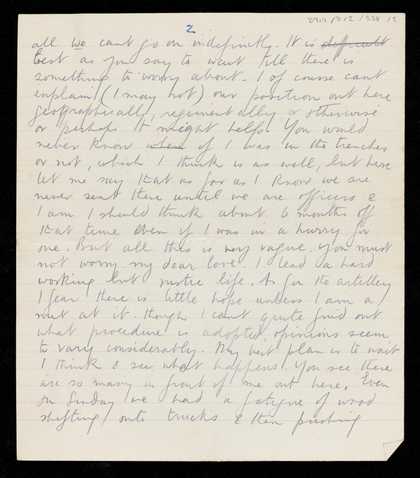 2
all we cant go on indefinitly. It is difficult
best as you say to wait till there is
something to worry about. I of course cant
explain (I may not) our position out here
geographically, regimentally or otherwise
or perhaps it might help. You would
never know when if I was in the trenches
or not, which I think is as well, but here
let me say that as far as I know we are
never sent there until we are officers &
I am I should think about 6 months off
that time even if I was in a hurry for
one. But all this is very vague, you must
not worry my dear love. I lead a hard
working but rustic life. As for the artillery
I fear there is little hope unless I am a
at it. though I cant quite find out
what procedure is adopted, opinions seem
to vary considerably. My best plan is to wait
I think & see what happens. You see there
are so many in front of me out here. Even
on Sunday we had a fatigue of wood
shifting onto trucks & then pushing